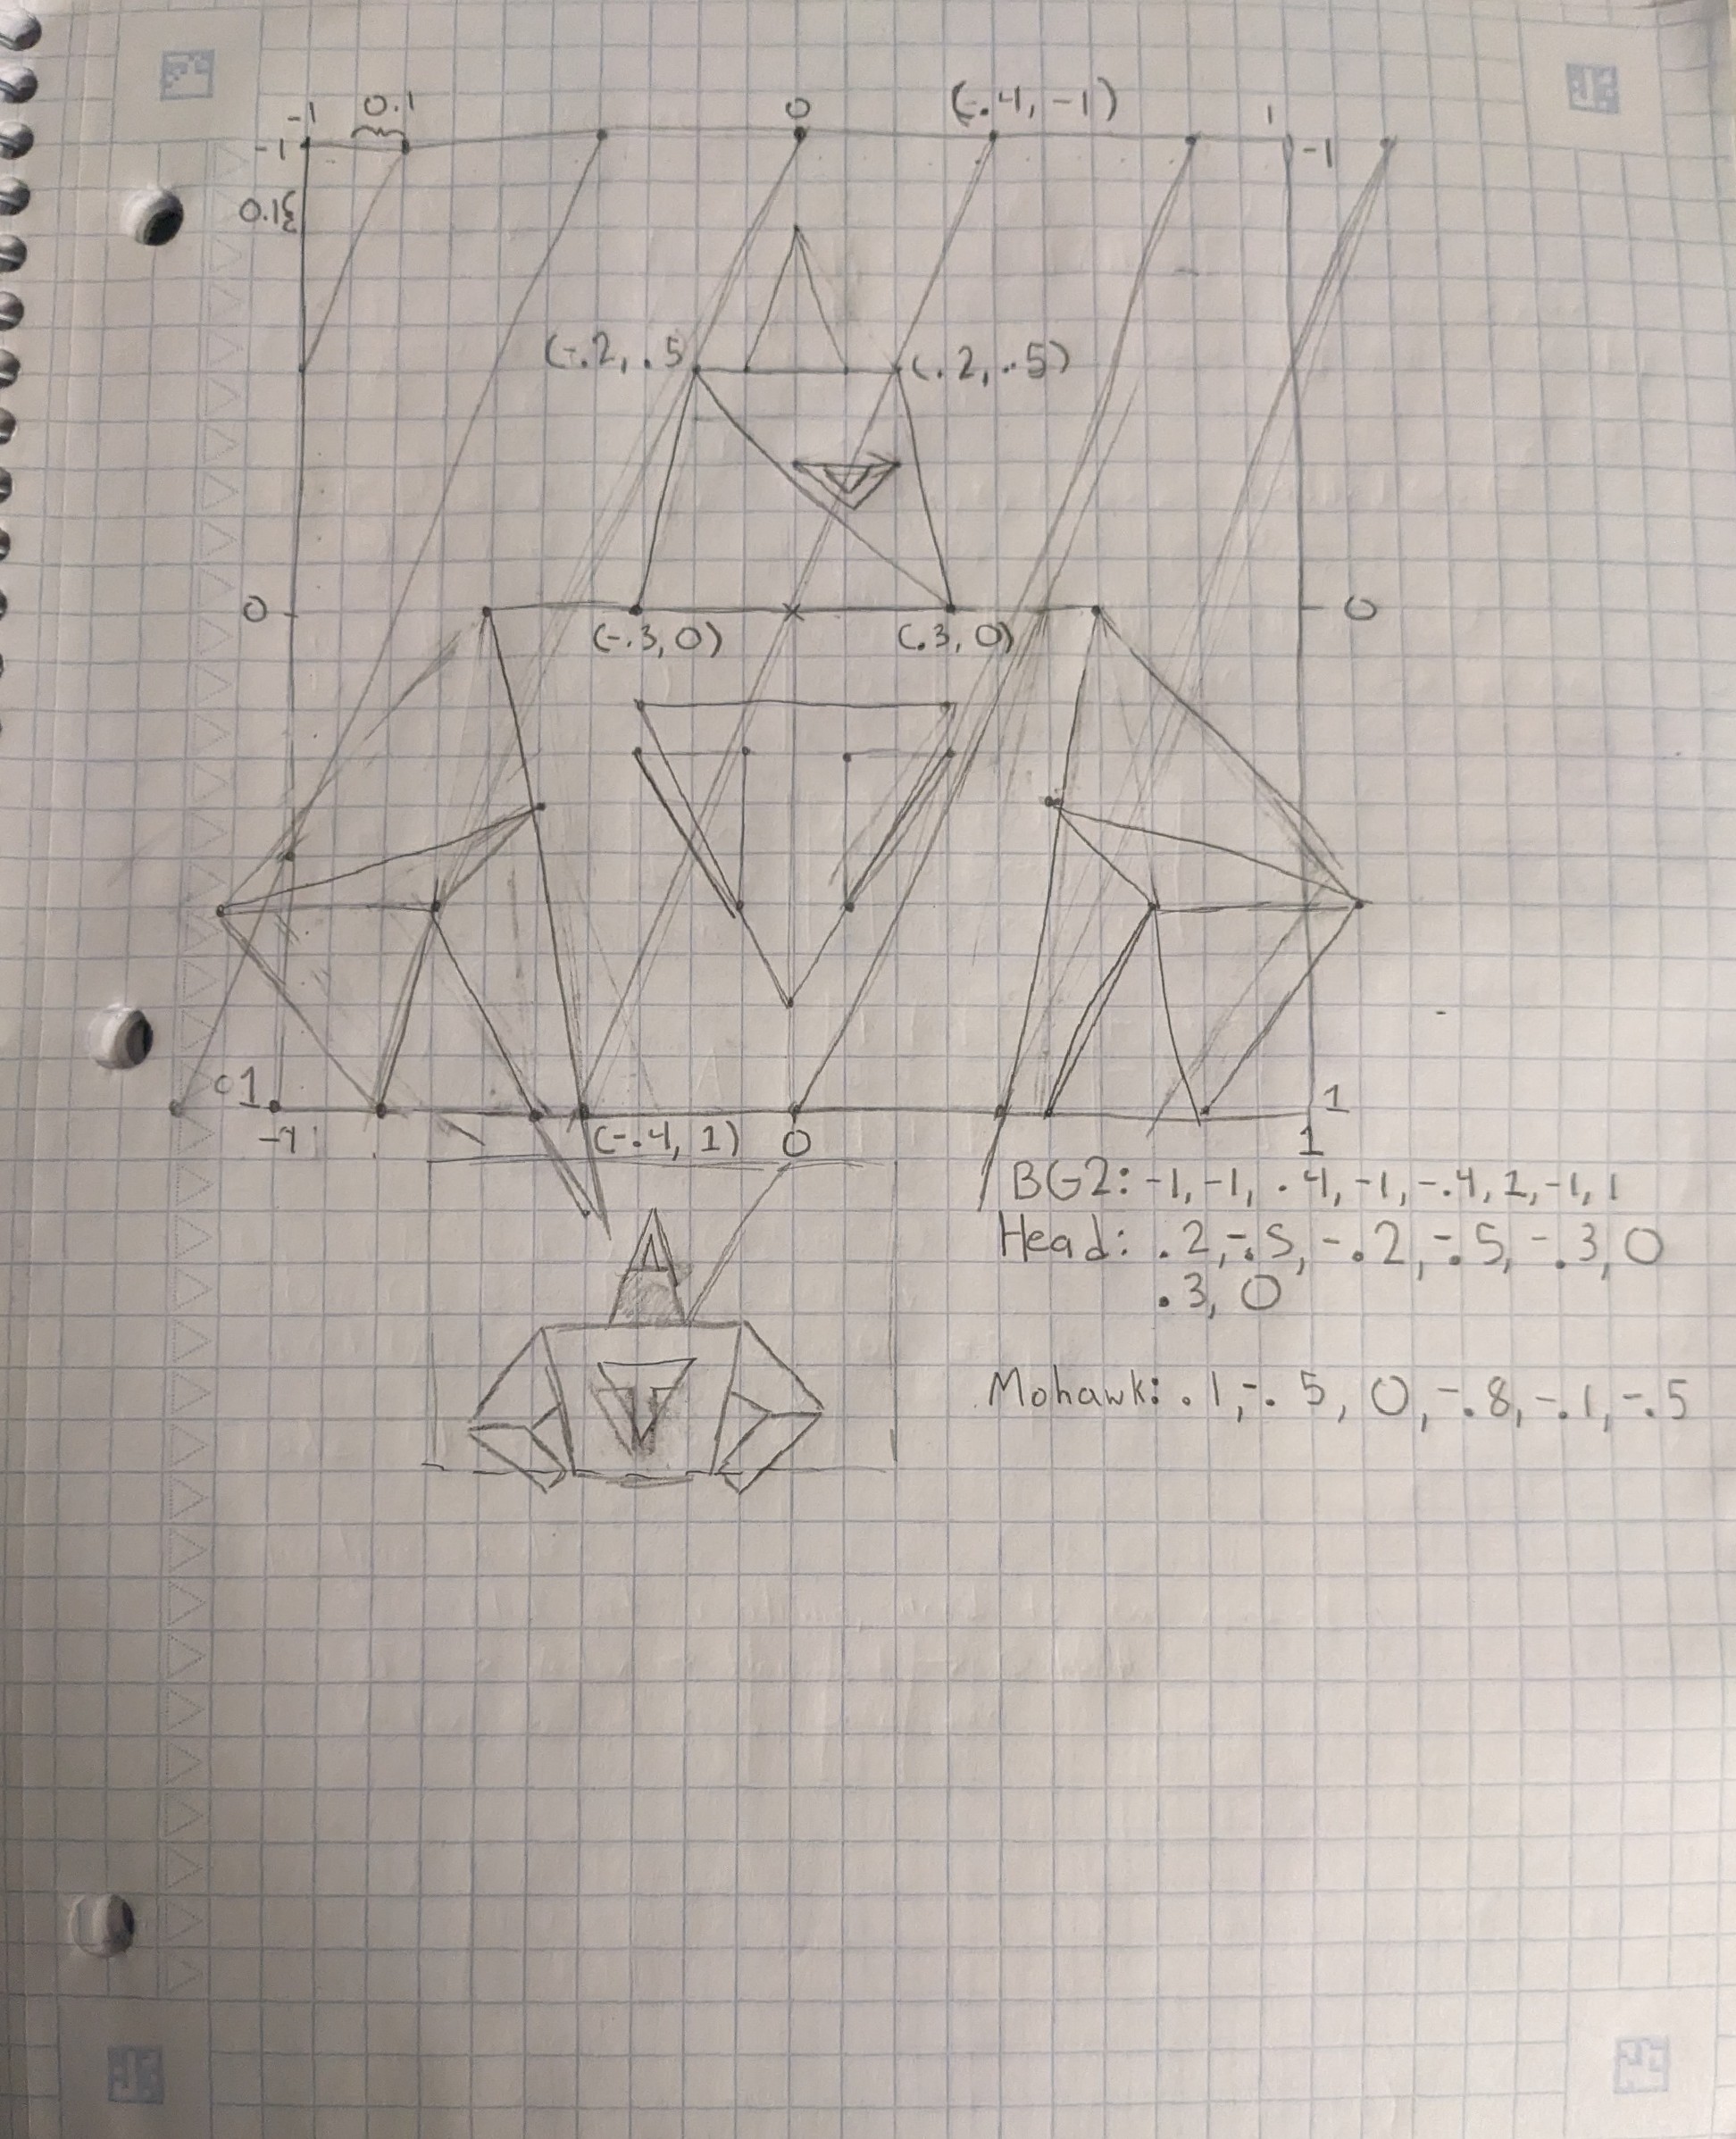 -1
0.1
0
(-.4, -1)
1
-1
-1
0.1
(-.2, .5
(.2, -.5)
0
0
(-.3, 0)
(.3, 0)
1
1
-1
(-.4, 1)
0
1
BG2: -1, -1, .4, -1, -.4, 1, -1, 1
Head: .2, -.5, -.2, -.5, -.3, 0
.3, 0
Mohawk: .1, -.5, 0, -.8, -.1, -.5